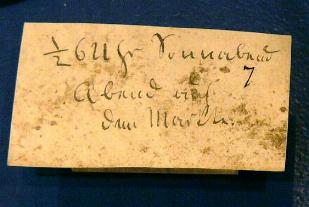 ½ 6 Uhr Sonnabend
7
Abend auf
dem Markte.